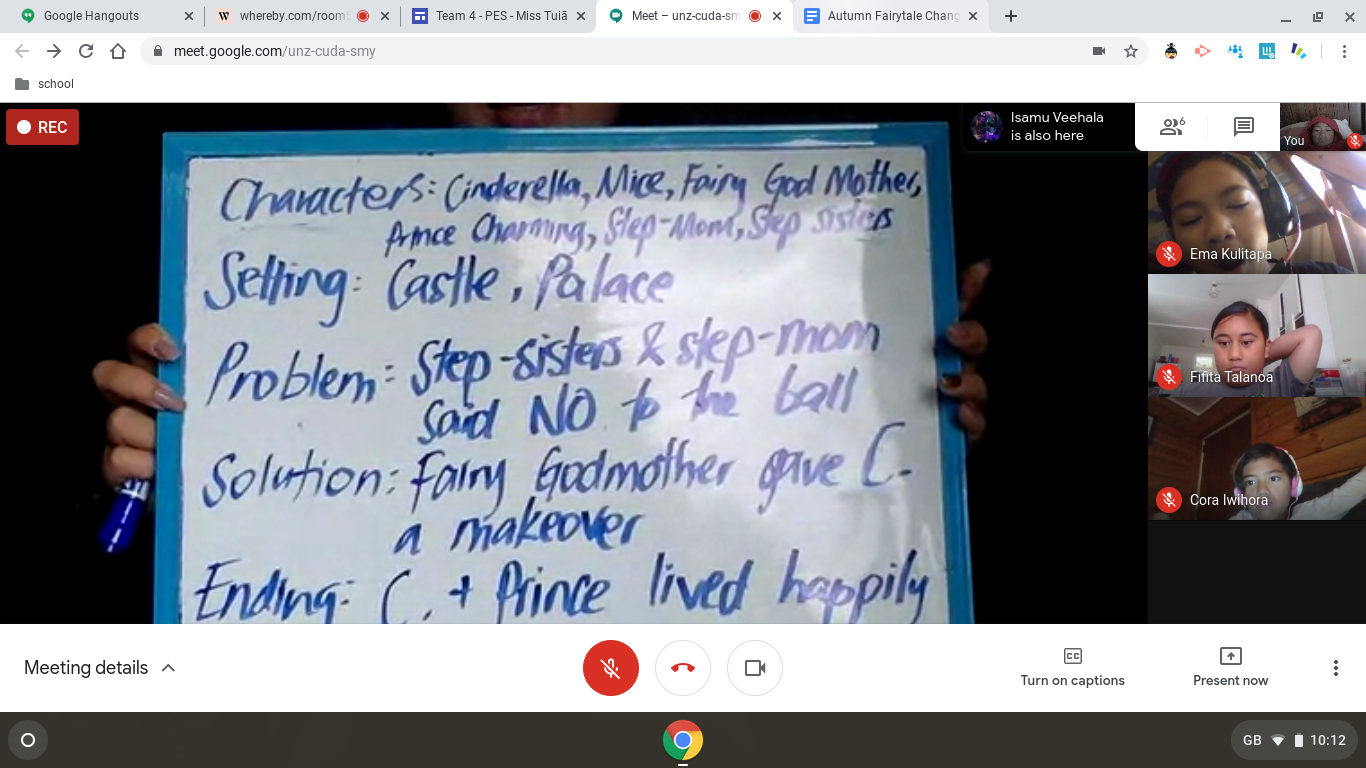 Google Hangouts
whereby.com/room
Team 4 - PES - Miss Tuiā
Meet – unz-cuda-sm
Autumn Fairytale Chang
meet.google.com/unz-cuda-smy
school
REC
Isamu Veehala
is also here
6
You
Characters: Cinderella, Mice, Fairy God Mother,
Prince Charming, Step-Mom, Step sisters
Setting: Castle, Palace
Problem: Step-sisters & step-mom
said NO to the ball
Solution: Fairy Godmother gave C.
a makeover
Ending: C. + Prince lived happily
Ema Kulitapa
Fifita Talanoa
Cora Iwihora
Meeting details
CC
Turn on captions
Present now
GB
10:12